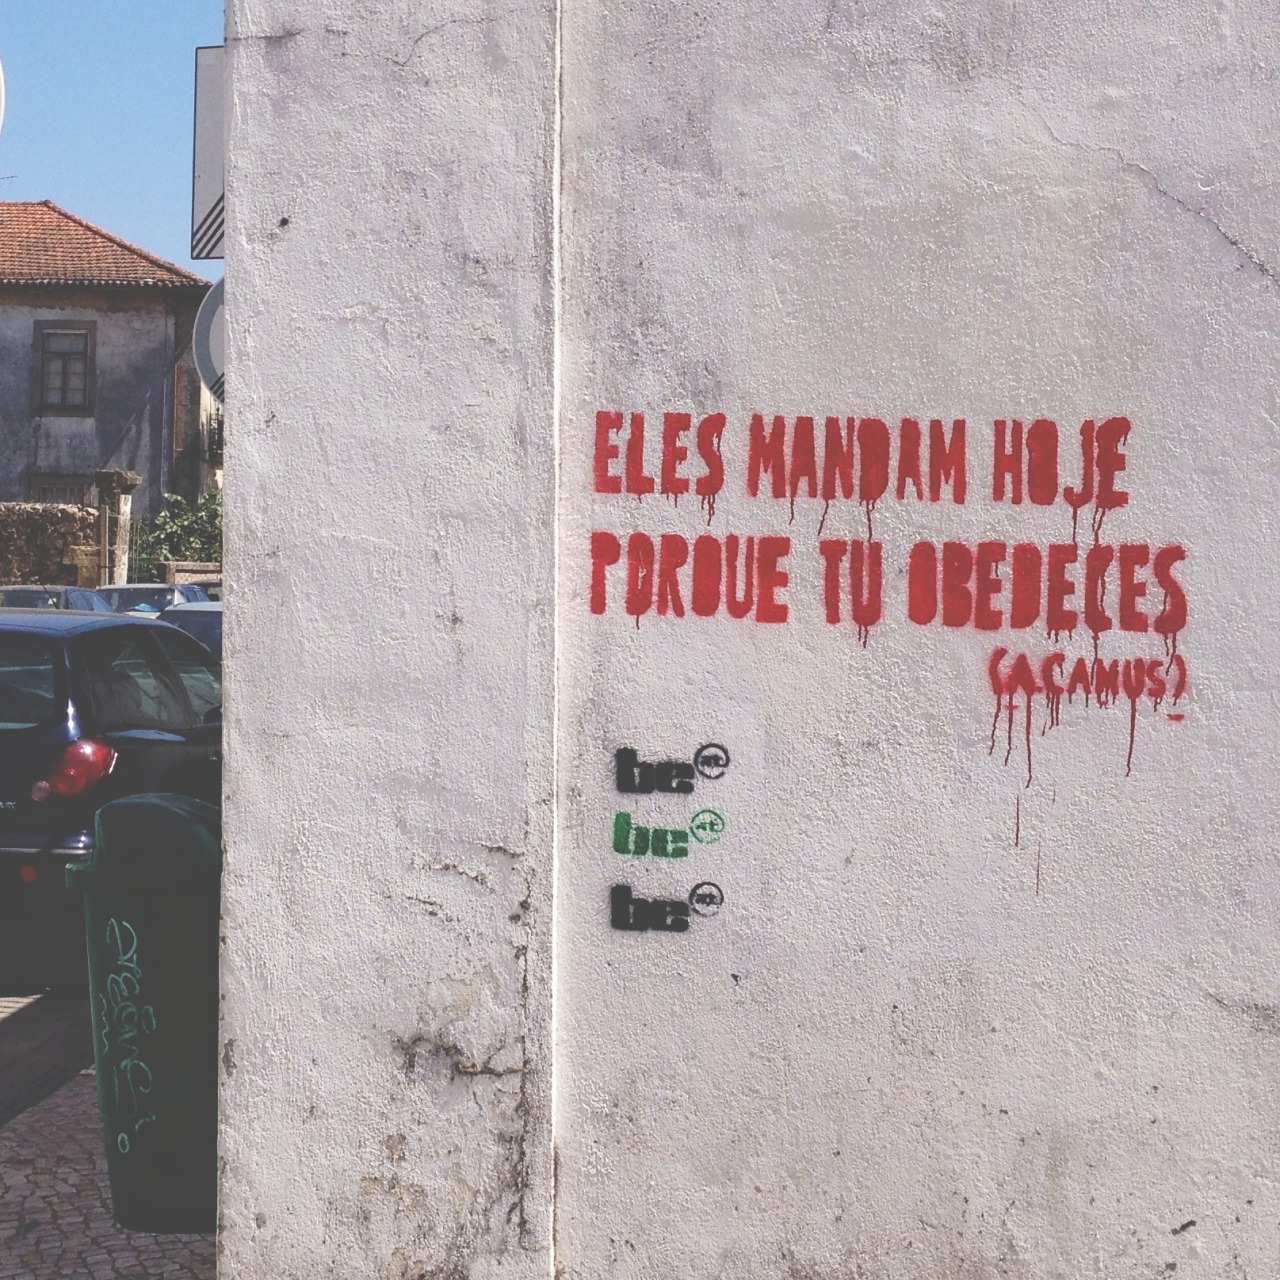 ELES MANDAM HOJE
PORQUE TU OBEDECES
(A.CAMUS)
be at
be at
be at